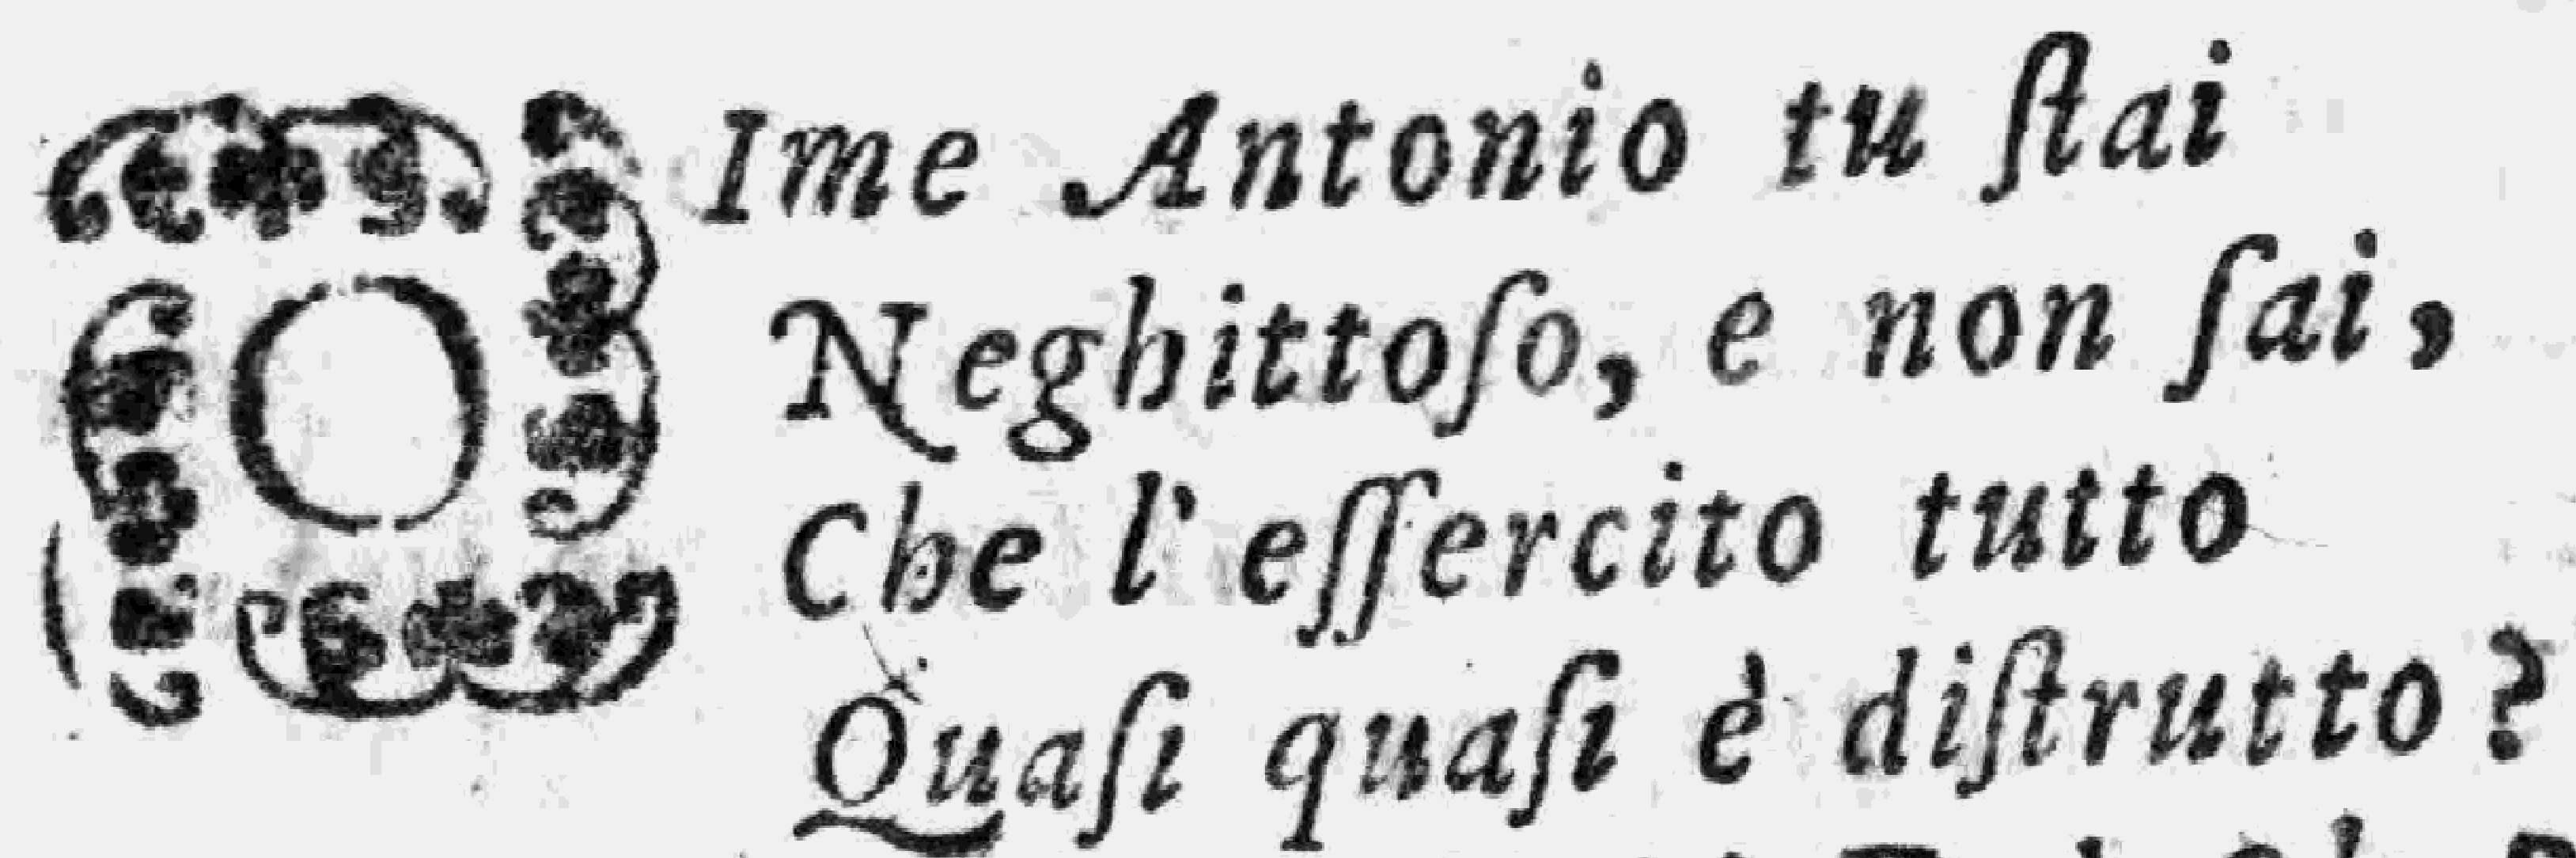 OIme Antonio tu ſtai
Neghittoſo, e non ſai,
Che l'eſſercito tutto
Quaſi quaſi è diſtrutto?